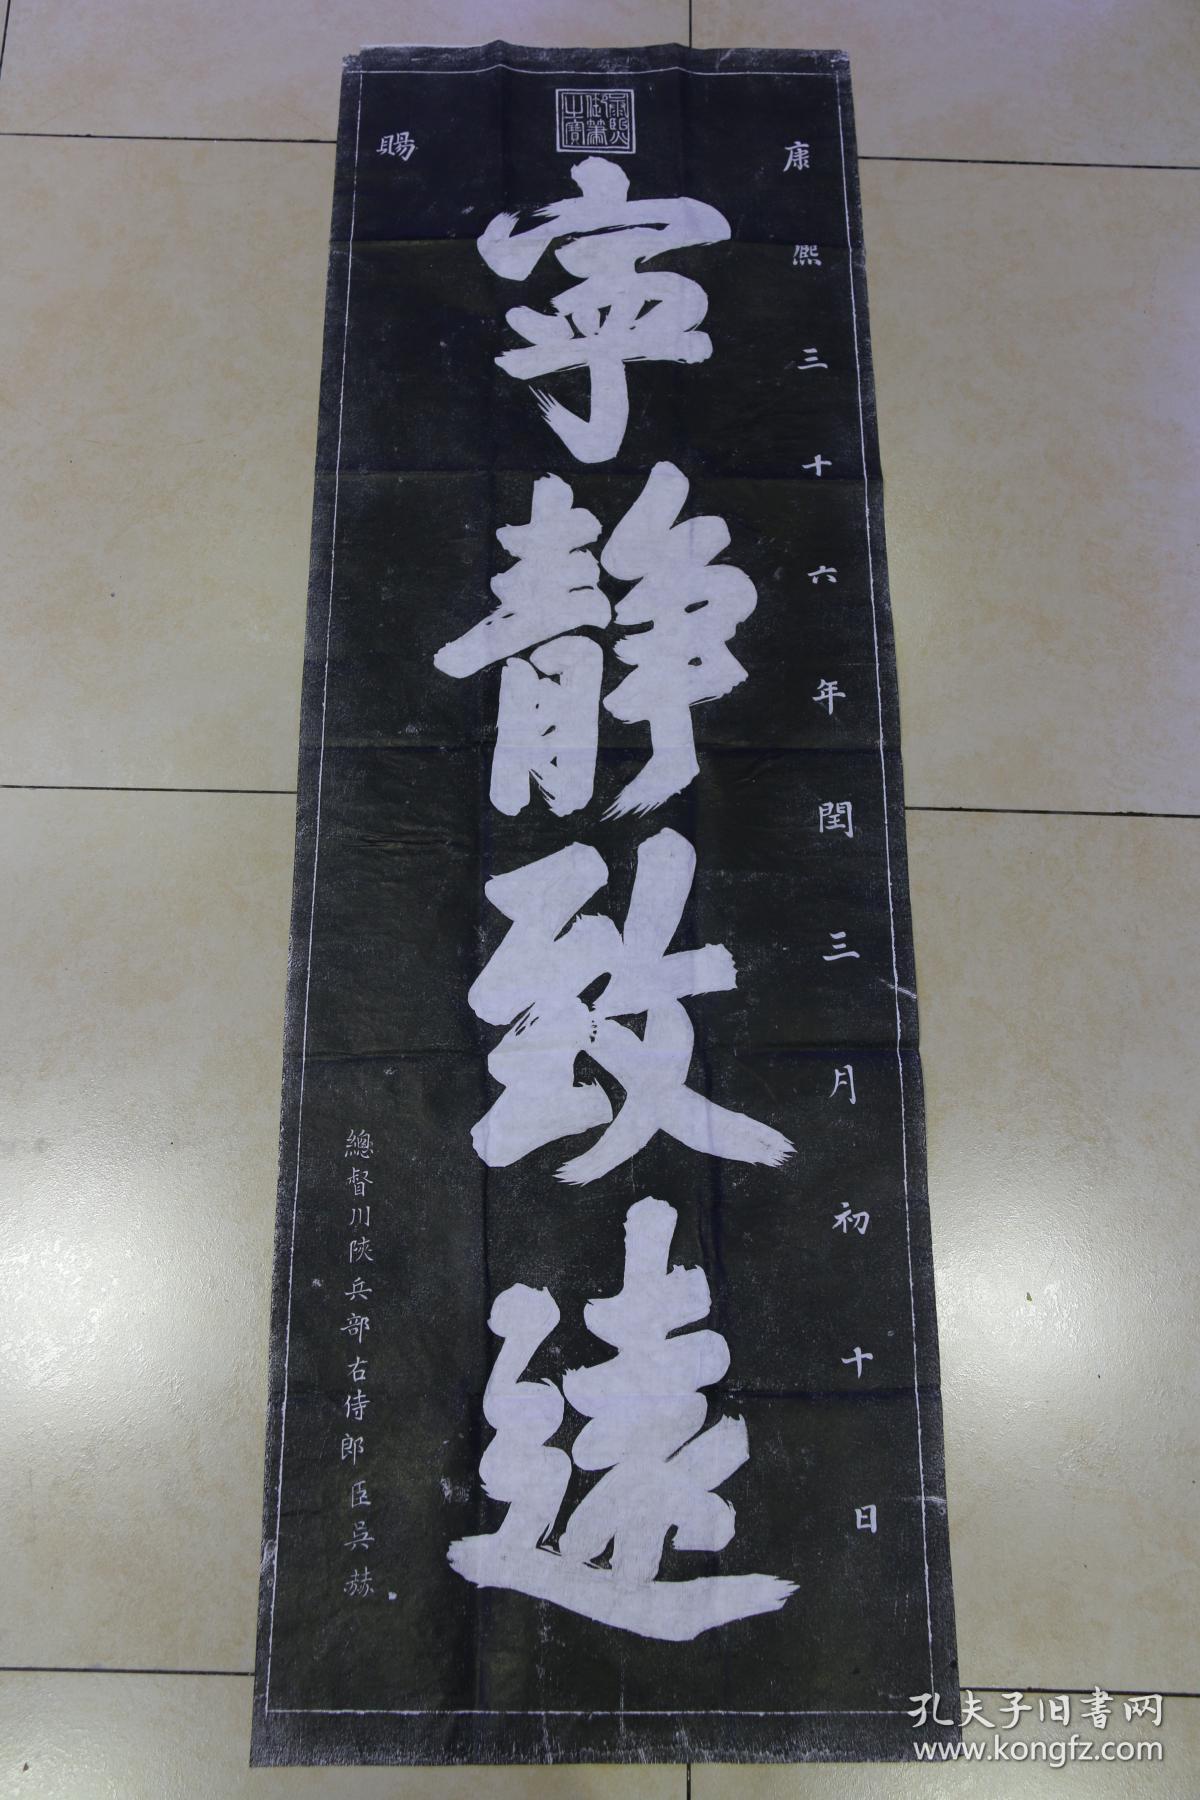 康熙三十六年閏三月初十日
康熙御筆之寶
寧靜致遠
賜
總督川陝兵部右侍郎臣吳赫
孔夫子旧书网
www.kongfz.com